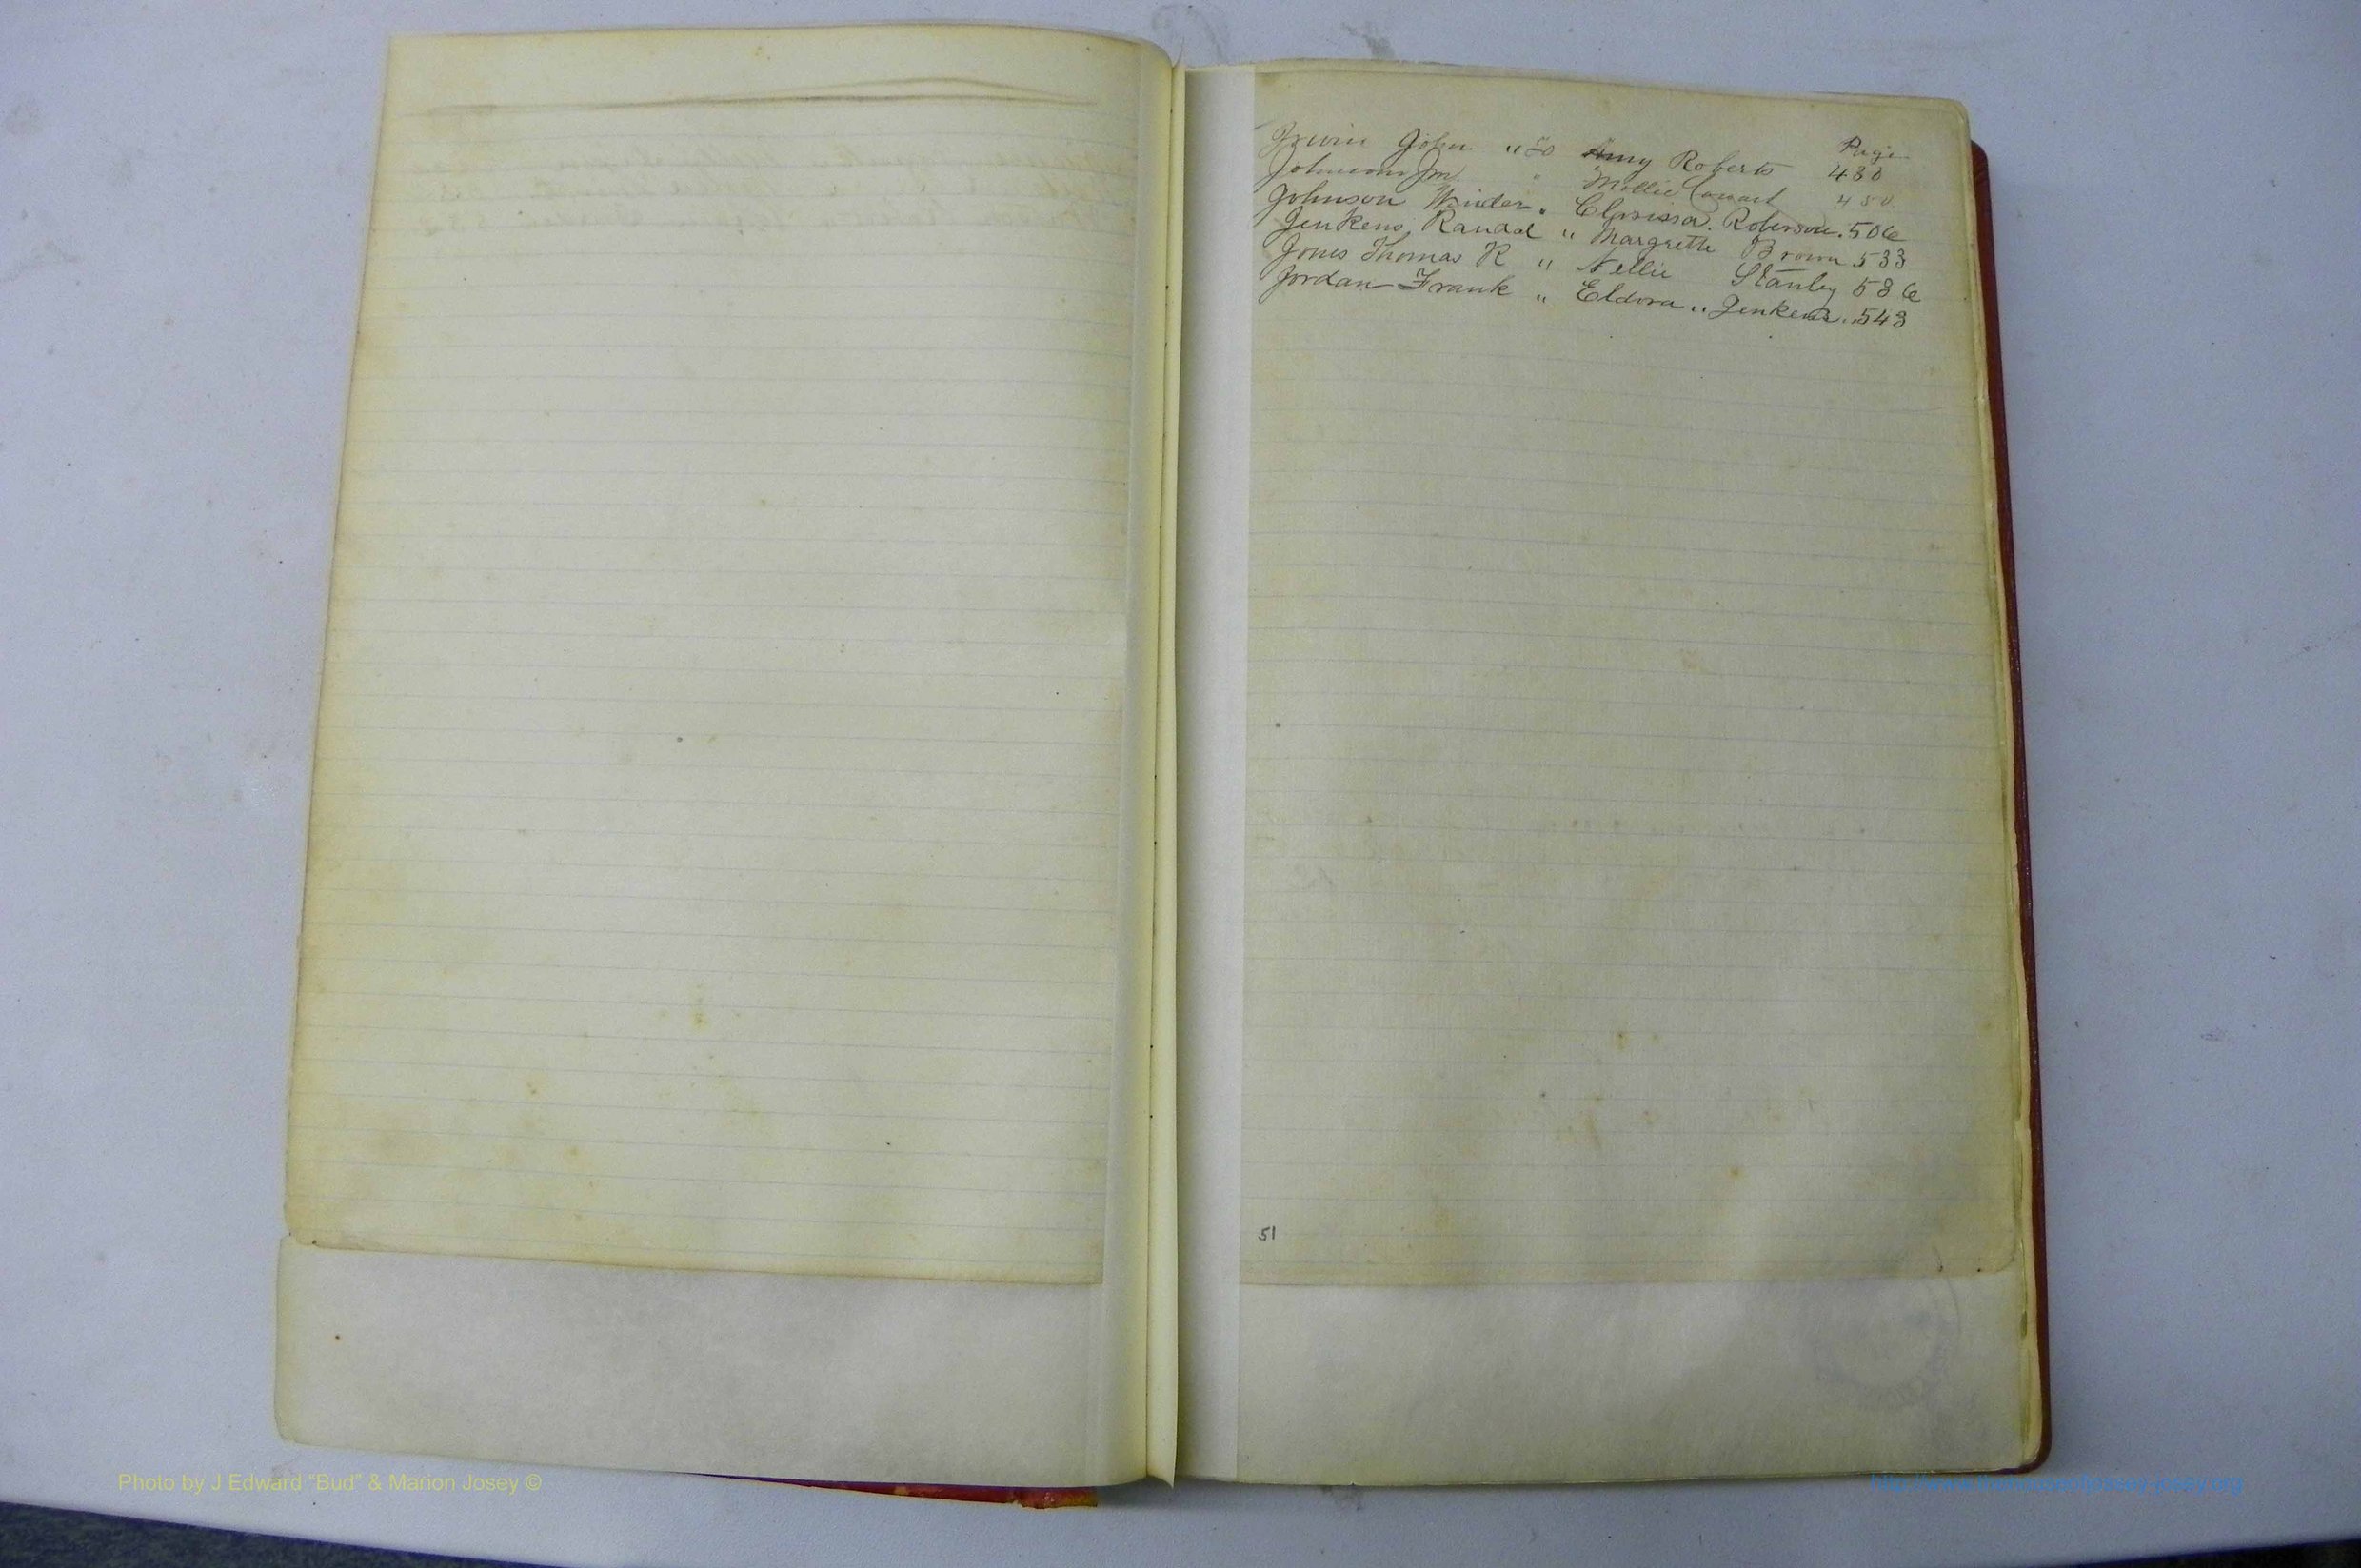 Page
Irwin John " to Amy Roberts 480
Johnson Jm. " Mollie Cowart 480
Johnson Winder " Clarissa. Roberson. 506
Jenkens, Randal " Margrette Brown 533
Jones Thomas R " Nellie Stanley 536
Jordan Frank " Eldora " Jenkens. " 543
51
Photo by J Edward "Bud" & Marion Josey ©